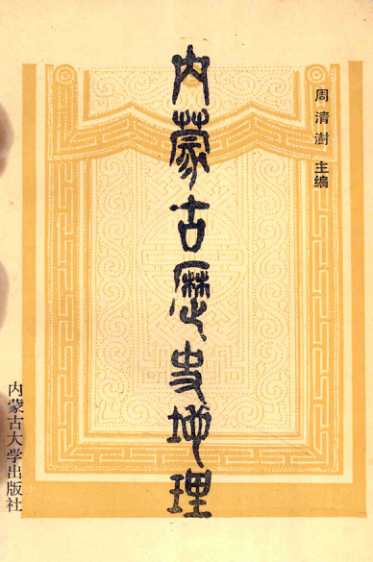 周清澍 主编
内蒙古歷史地理
内蒙古大学出版社